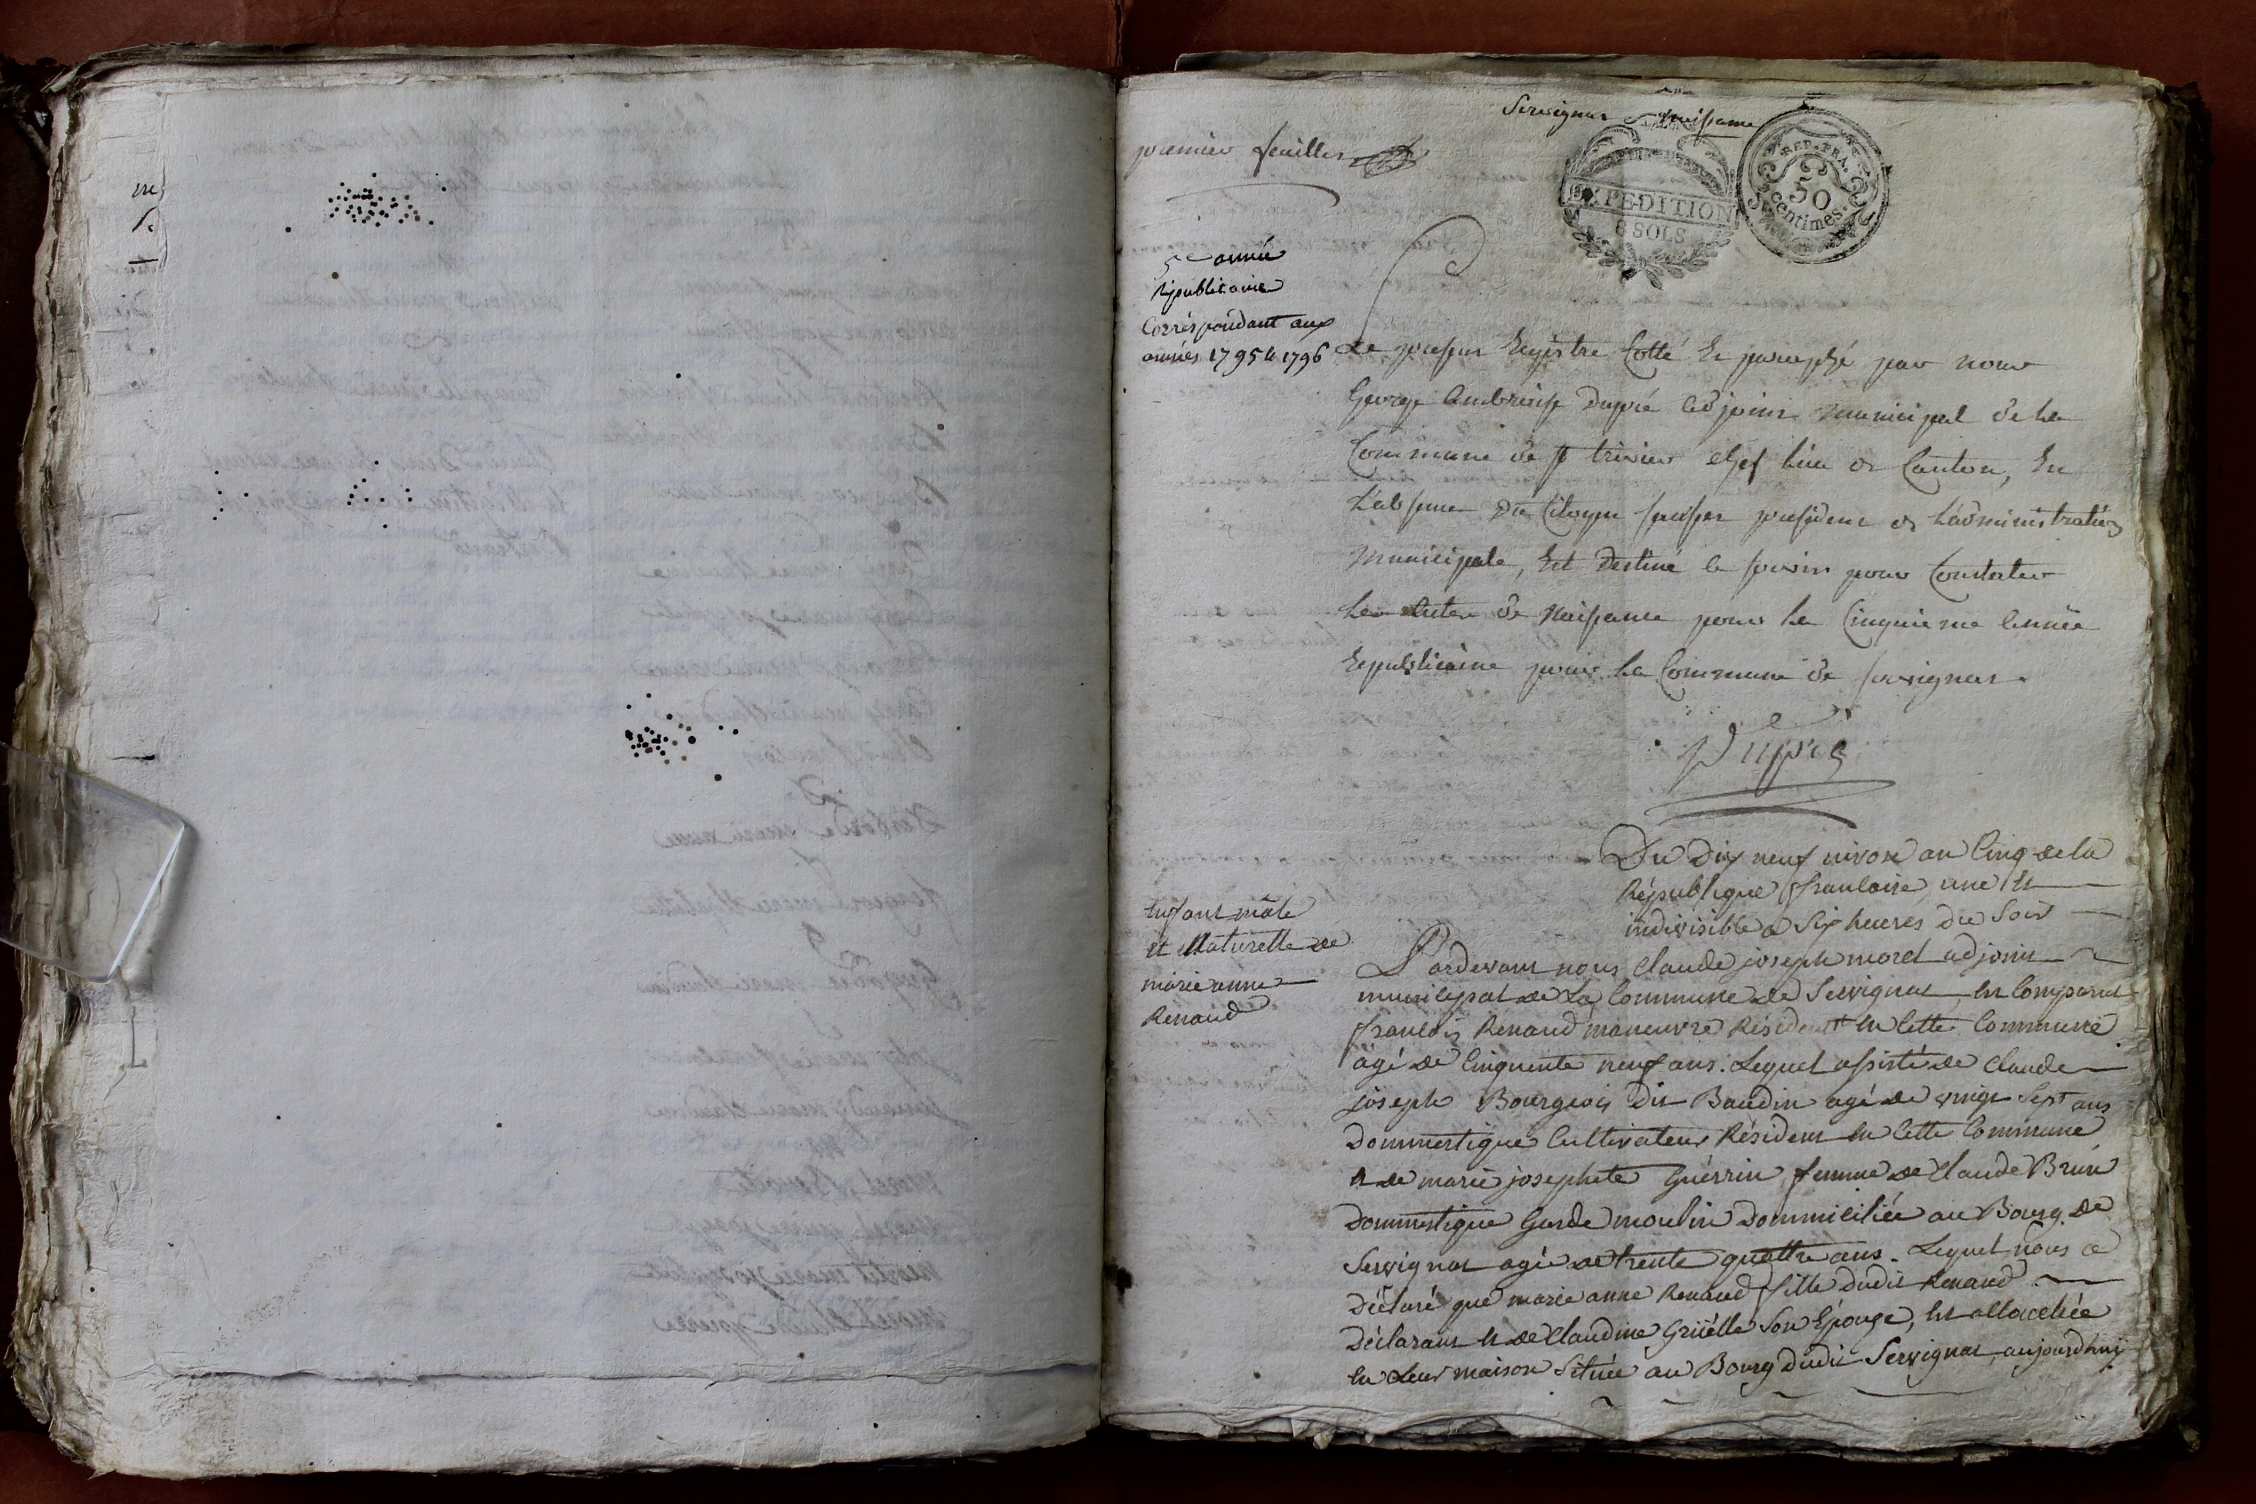 Servignat Naissance
premier feuillet
EXPEDITION
6 SOLS
REP. FRA.
50
centimes.
5e année
Républicaine
Correspondant aux
années 1795 & 1796
Le present Registre Cotté et paraphé par nous
George Ambroise Dupré adjoint municipal de la
Commune de St trivier chef lieu de Canton, En
L'absence du Citoyen president de L'administration
Municipale, Est Destiné a servir pour Constater
Les Actes de Naissance pour la Cinquieme année
Republicaine pour la Commune de servignat.
Dupré
Du Dix neuf nivose an Cinq de la
République francaise une Et
indivisible a Six heures du Soir
Enfant mâle
et Naturelle de
marie anne
Renaud
Pardevant nous Claude joseph morel adjoint
municipal de La Commune de Servignat Est Comparut
francois Renaud maneuvre Résident En Cette Commune
agé de Cinquente neuf ans. Lequel assisté de Claude
joseph Bourgeois dit Baudin agé de vingt Sept ans
Dommestique Cultivateur Résident En Cette Commune
Et de marie josephete Guérrin femme de Claude Brun
Dommestique Garde moulin Dommiciliée au Bourg de
Servignat agé de trente quattre ans. Lequel nous a
Déclaré que marie anne Renaud fille dudit Renaud
Déclarant Et de Claudine Gruëlle Son Epouse, Est allacchée
En Leur maison Située au Bourg dudit Servignat aujourdhuij